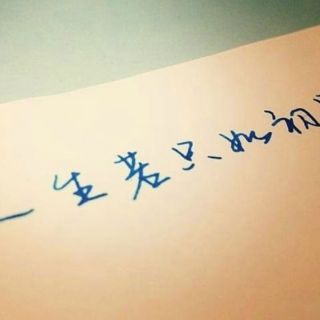 一生若只如初